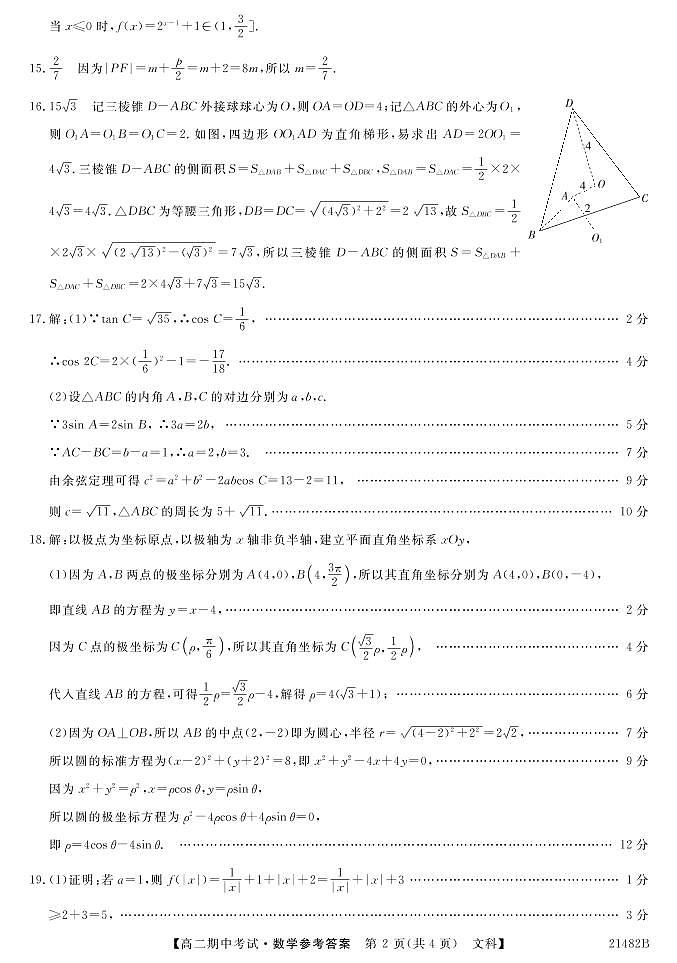 当 x≤0 时,f(x)=2^{x-1}+1∈(1,3/2].
15. 2/7 因为|PF|=m+p/2=m+2=8m,所以 m=2/7.
16. 15√3 记三棱锥 D-ABC 外接球球心为O,则 OA=OD=4;记△ABC 的外心为O₁,
则 O₁A=O₁B=O₁C=2. 如图,四边形 OO₁AD 为直角梯形,易求出 AD=2OO₁=
4√3. 三棱锥 D-ABC 的侧面积 S=S△DAB+S△DAC+S△DBC,S△DAB=S△DAC=1/2×2×
4√3=4√3. △DBC 为等腰三角形,DB=DC=√((4√3)²+2²)=2√13,故 S△DBC=1/2
×2√3×√((2√13)²-(√3)²)=7√3,所以三棱锥 D-ABC 的侧面积 S=S△DAB+
S△DAC+S△DBC=2×4√3+7√3=15√3.
D
4
4
O
A
C
2
B
O₁
17. 解:(1)∵tan C=√35,∴cos C=1/6, …… 2 分
∴cos 2C=2×(1/6)²-1=-17/18. …… 4 分
(2)设△ABC 的内角 A,B,C 的对边分别为 a,b,c.
∵3sin A=2sin B, ∴3a=2b, …… 5 分
∵AC-BC=b-a=1,∴a=2,b=3. …… 7 分
由余弦定理可得 c²=a²+b²-2abcos C=13-2=11, …… 9 分
则 c=√11,△ABC 的周长为 5+√11. …… 10 分
18. 解:以极点为坐标原点,以极轴为 x 轴非负半轴,建立平面直角坐标系 xOy,
(1)因为 A,B 两点的极坐标分别为 A(4,0),B(4,3π/2),所以其直角坐标分别为 A(4,0),B(0,-4),
即直线 AB 的方程为 y=x-4, …… 2 分
因为 C 点的极坐标为 C(ρ,π/6),所以其直角坐标为 C(√3/2ρ,1/2ρ), …… 4 分
代入直线 AB 的方程,可得1/2ρ=√3/2ρ-4,解得 ρ=4(√3+1); …… 6 分
(2)因为 OA⊥OB,所以 AB 的中点(2,-2)即为圆心,半径 r=√((4-2)²+2²)=2√2, …… 7 分
所以圆的标准方程为(x-2)²+(y+2)²=8,即 x²+y²-4x+4y=0, …… 9 分
因为 x²+y²=ρ²,x=ρcos θ,y=ρsin θ,
所以圆的极坐标方程为 ρ²-4ρcos θ+4ρsin θ=0,
即 ρ=4cos θ-4sin θ. …… 12 分
19. (1)证明:若 a=1,则 f(|x|)=1/|x|+1+|x|+2=1/|x|+|x|+3 …… 1 分
≥2+3=5, …… 3 分
【高二期中考试·数学参考答案 第 2 页(共 4 页) 文科】 21482B